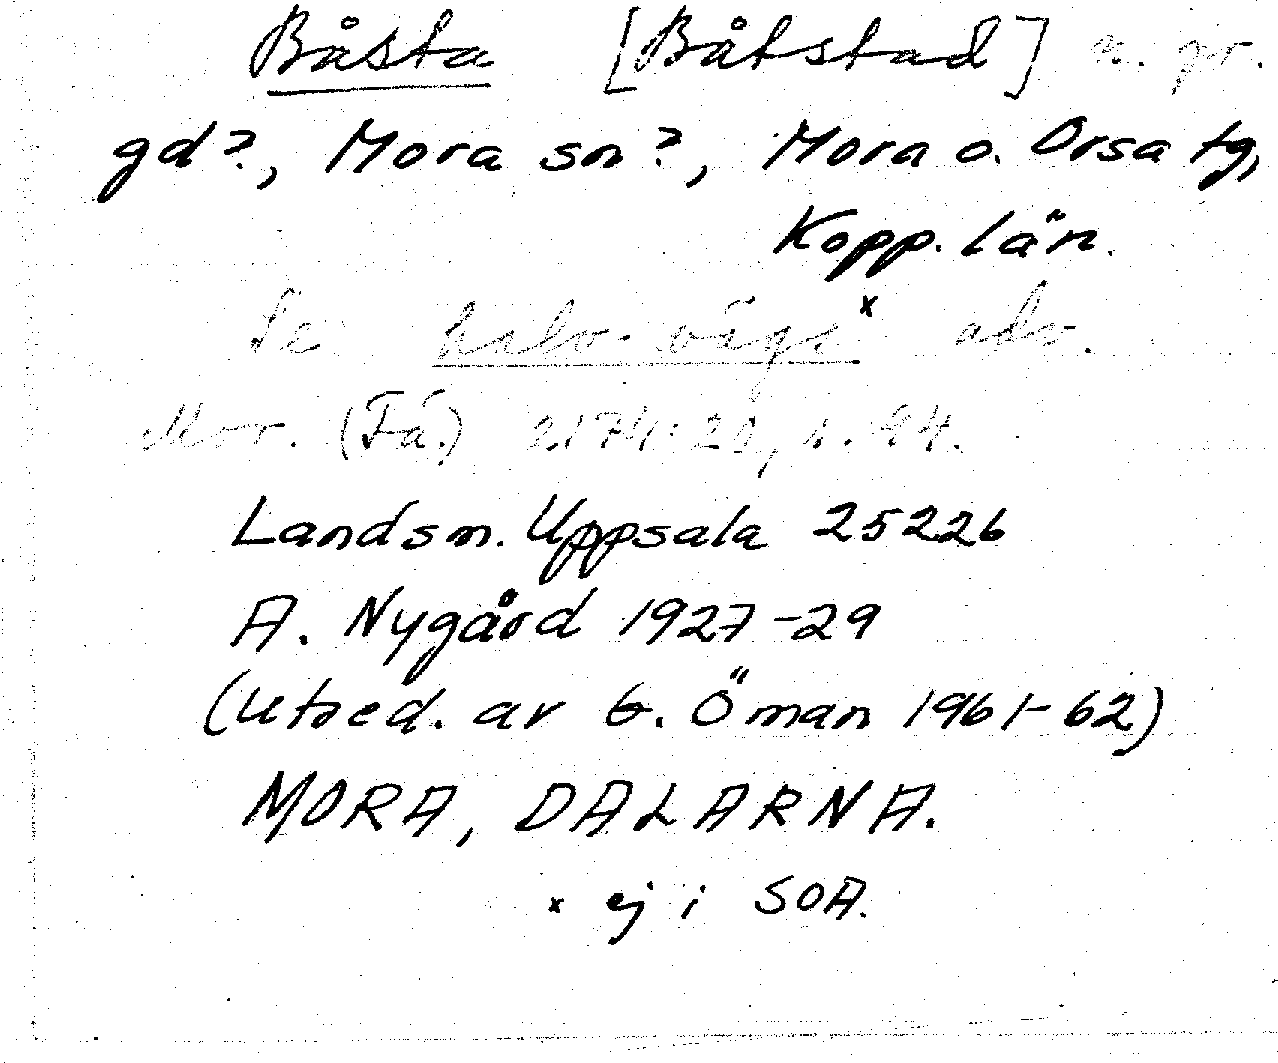 Båsta [Båtstad] n. pr.
gd?, Mora sn?, Mora o. Orsa tg,
Kopp. län.
Se halv-vägs x adv.
Mor. (Få.) 2174:20, s. 94.
Landsm. Uppsala 25226
A. Nygård 1927-29
(Utred. av G. Öman 1961-62)
MORA, DALARNA.
x ej i SOA.